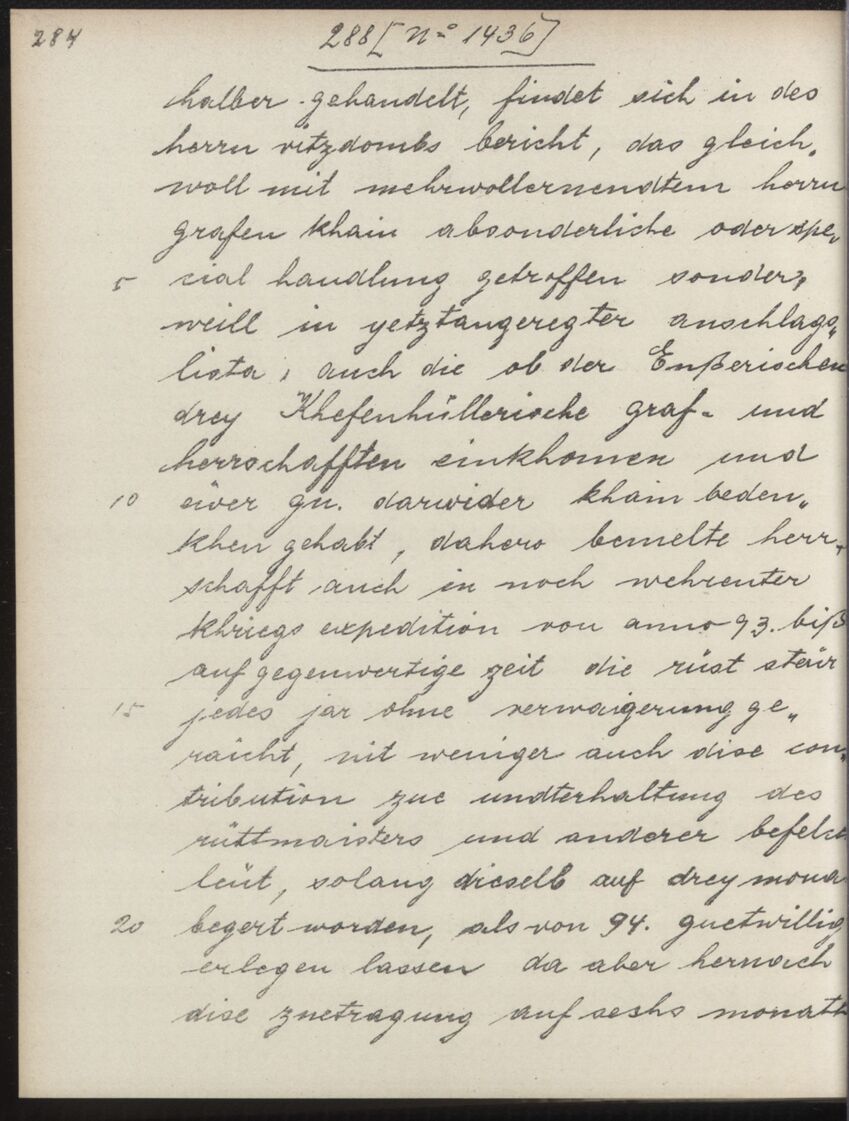 284
288 [Nº 1436]
halber gehandelt, findet sich in des
herrn vitzdombs bericht, das gleich„
woll mit mehrwollernendtem herrn
grafen khain absonderliche oder spe„
5 cial handlung getroffen sonder„
weill in yetztangeregter anschlags„
lista, auch die ob der Enßerischen
drey Khefenhüllerische graf- und
herrschafften einkhomen und
10 eüer gn. darwider khain beden„
khen gehabt, dahero bemelte herr„
schafft auch in noch wehrenter
khriegs expedition von anno 93. biß
auf gegenwertige zeit die rüst steür
15 jedes jar ohne verwaigerung ge„
raicht, nit weniger auch dise con„
tribution zue undterhaltung des
rüttmaisters und anderer befelch
leüt, solang dieselb auf drey mona
20 begert worden, als von 94. guetwillig
erlegen lassen da aber hernach
dise zuetragung auf sechs monath